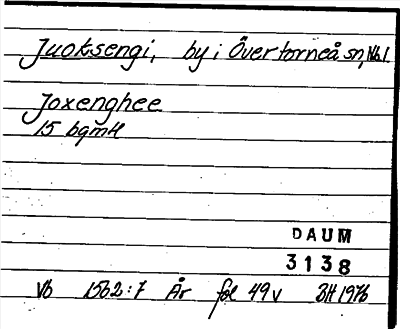 Juoksengi, by i Övertorneå sn, Nbl
Joxenghee
15 bgmtl
DAUM
3138
Vb 1562:7 År fol 49v BH 1976